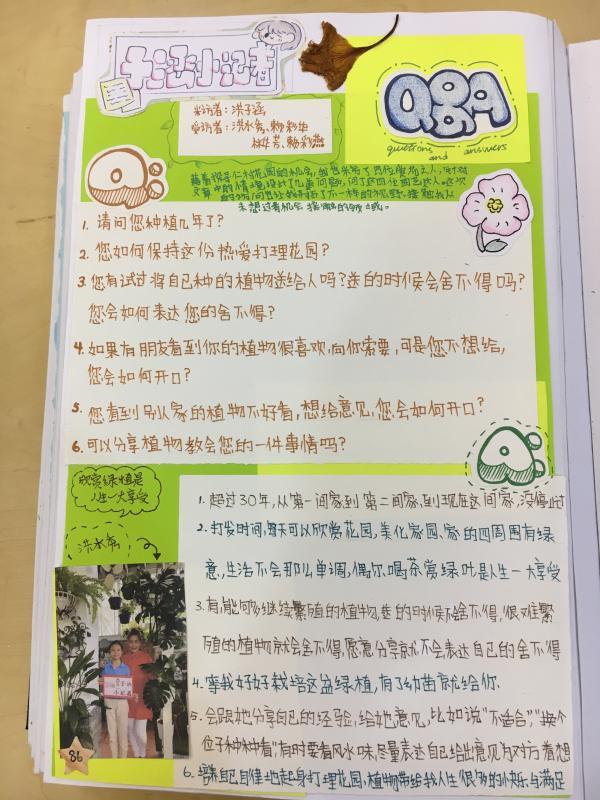 子涵小记者
Q&A
questions and answers
采访者：洪子涵
受访者：洪水
未想过有机会接触的领域。
Q
1. 请问您种植几年了？
2. 您如何保持这份热爱打理花园？
3. 您有试过将自己种的植物送给人吗？送的时候会舍不得吗？
您会如何表达您的舍不得？
4. 如果有朋友看到你的植物很喜欢，向你索要，可是您不想给，
您会如何开口？
5. 您看到别人家的植物不好看，想给意见，您会如何开口？
6. 可以分享植物教会您的一件事情吗？
A
欣赏绿植是
人生一大享受
洪水
1. 超过30年，从第一间家到第二间家，到现在这间家，没停止过
2. 打发时间，每天可以欣赏花园，美化家园、家的四周围有绿
意，生活不会那么单调，偶尔喝茶赏绿叶是人生一大享受
3. 有，能够继续繁殖的植物，送的时候不会舍不得，很难繁
殖的植物就会舍不得，愿意分享就不会表达自己的舍不得
4. 等我好好栽培这盆绿植，有了幼苗就给你
5. 会跟她分享自己的经验，给她意见，比如说"不适合"，"换个
位子种种看"有时要看风水味，尽量表达自己给出意见为对方着想
6. 培养自己自律地起身打理花园，植物带给我人生很多的快乐与满足
86